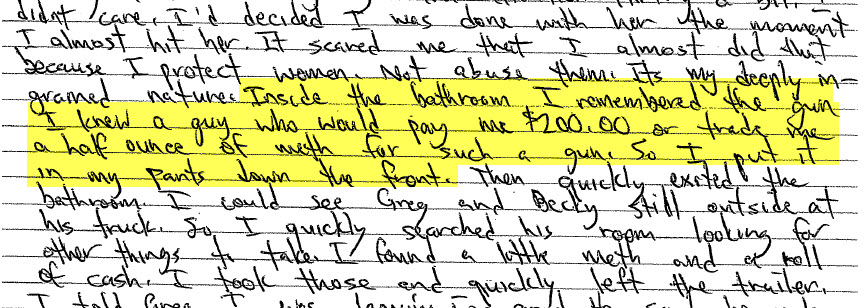 didnt care. I'd decided I was done with her the moment
I almost hit her. It scared me that I almost did that
because I protect women. Not abuse them. Its my deeply in-
grained nature. Inside the bathroom I remembered the gun
I knew a guy who would pay me $200.00 or trade me
a half ounce of meth for such a gun. So I put it
in my pants down the front. Then quickly exited the
bathroom. I could see Greg and Becky still outside at
his truck. So I quickly searched his room looking for
other things to take. I found a little meth and a roll
of cash. I took those and quickly left the trailer.
I told Greg I was